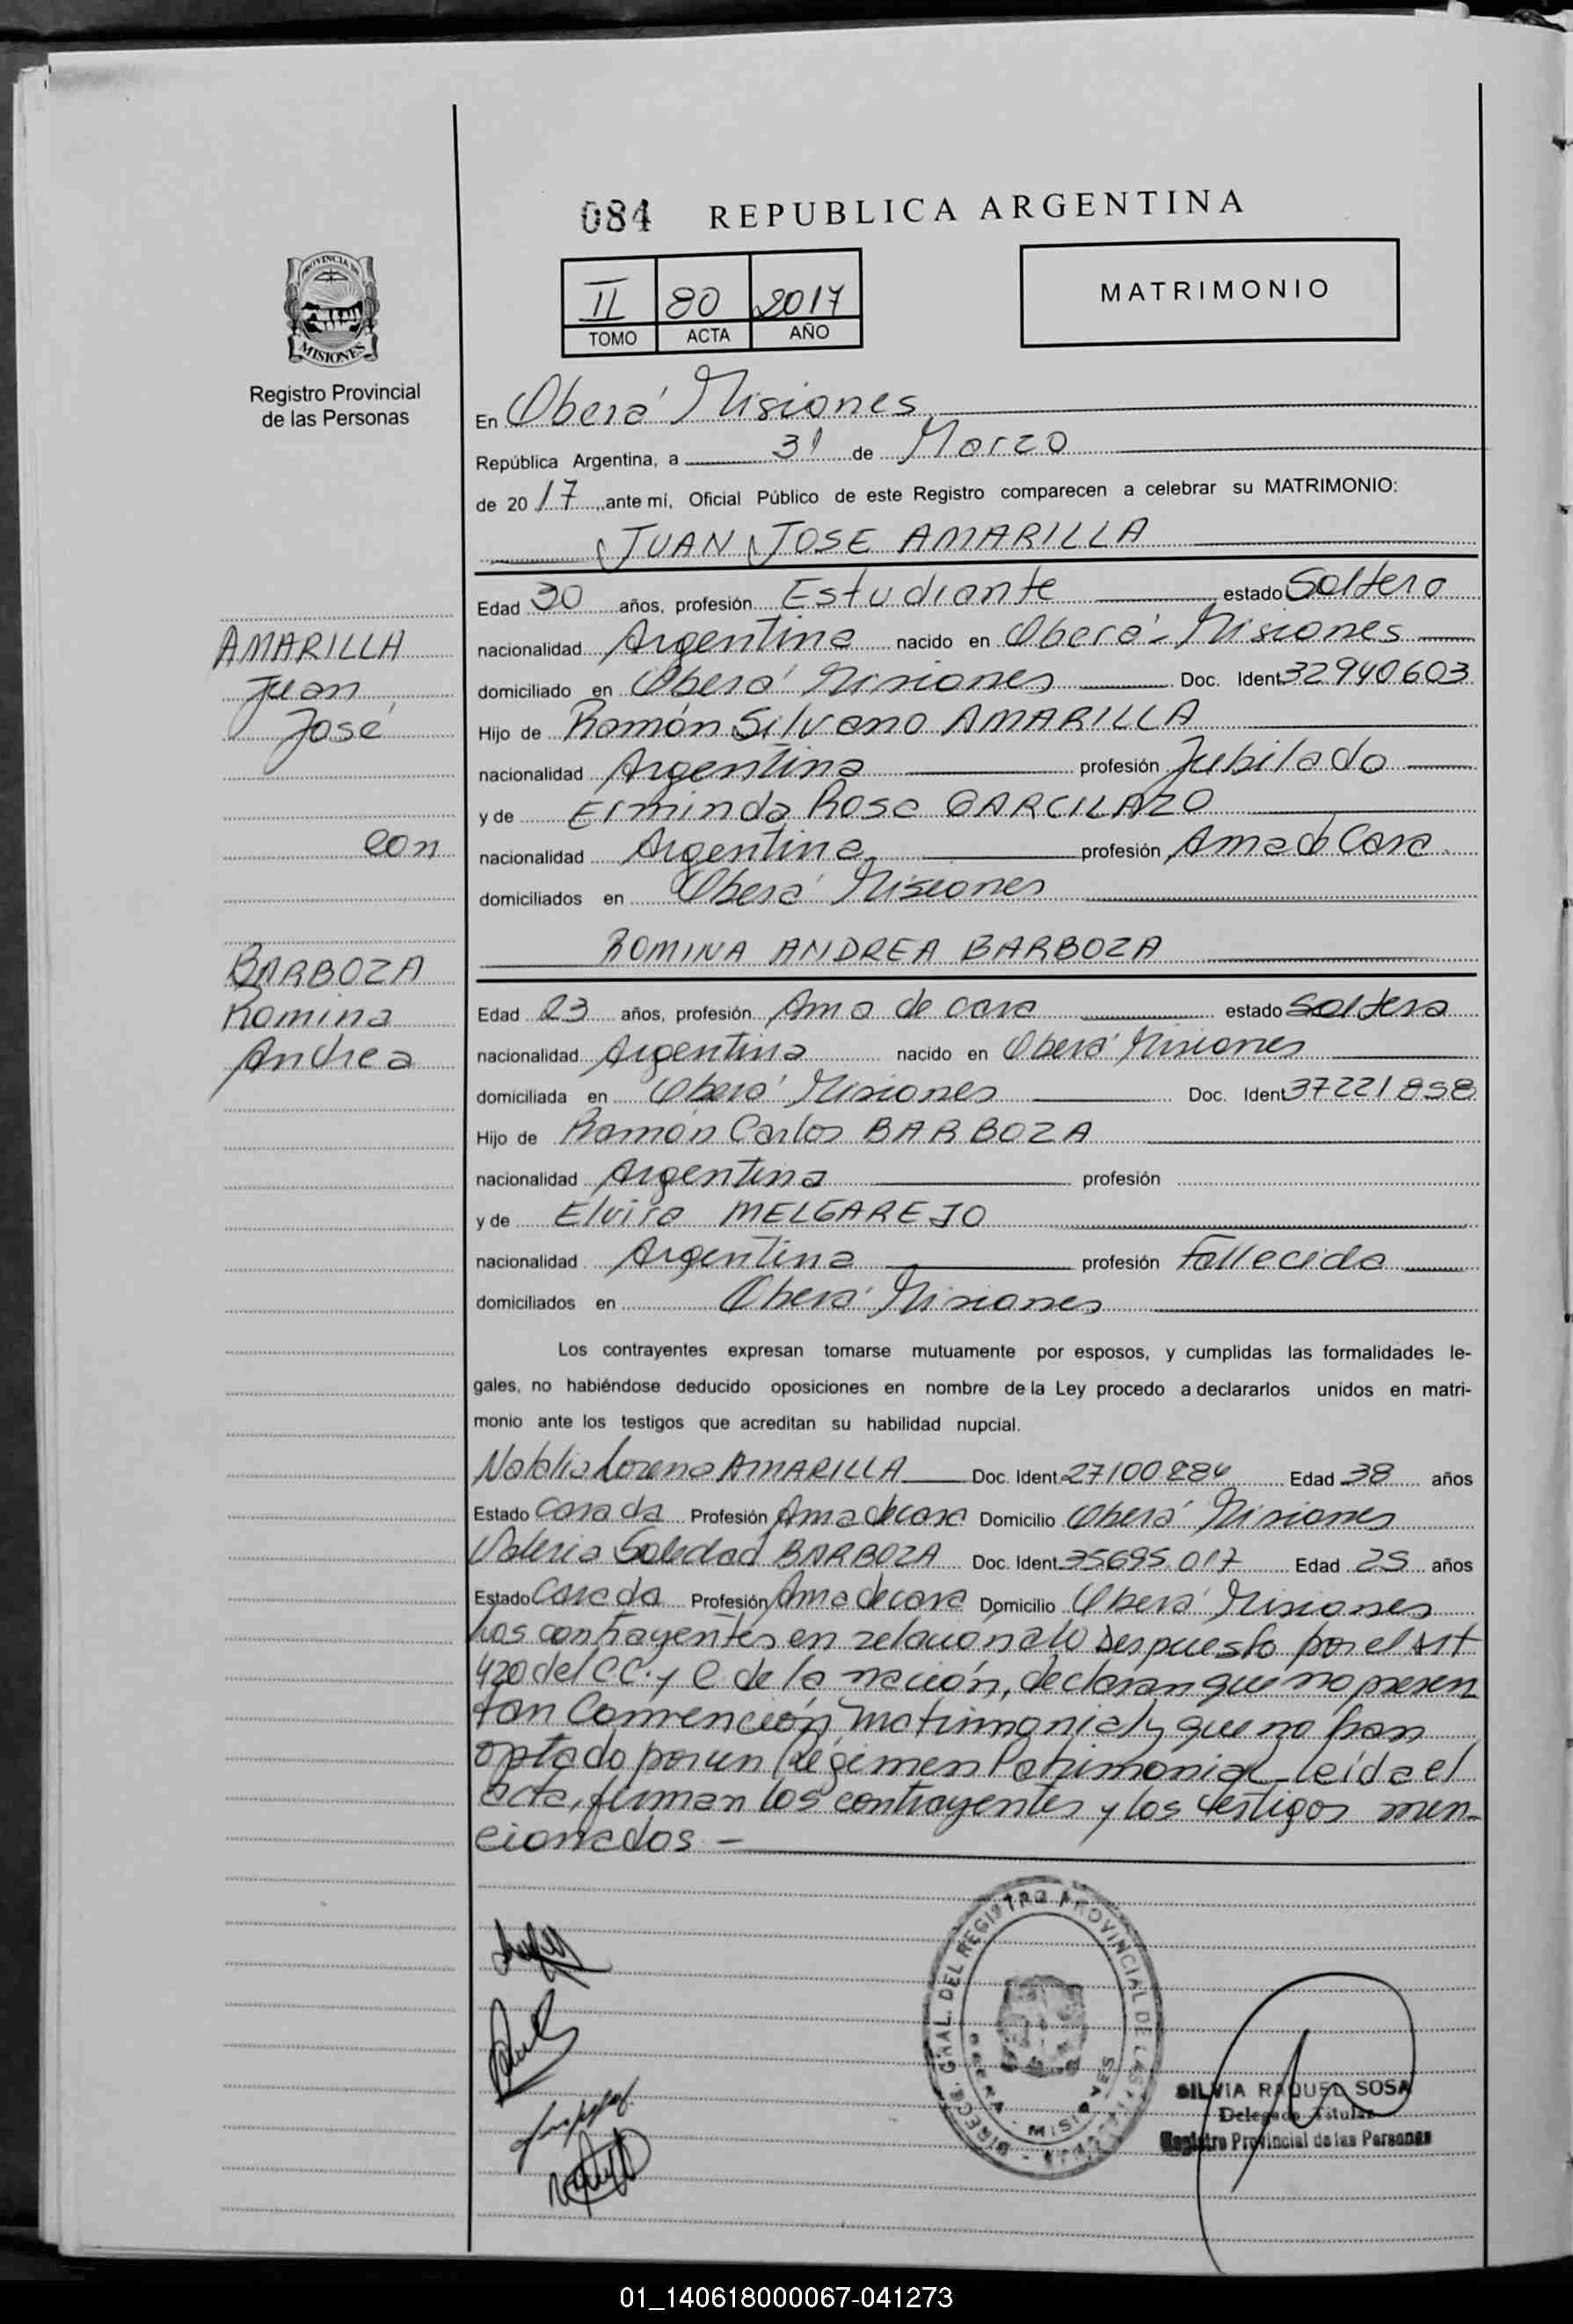 084 REPUBLICA ARGENTINA
PROVINCIA DE
MISIONES
Registro Provincial
de las Personas
II 80 2017
TOMO ACTA AÑO
MATRIMONIO
En Oberá Misiones
República Argentina, a 31 de Marzo
de 20 17 ante mí, Oficial Público de este Registro comparecen a celebrar su MATRIMONIO:
JUAN JOSE AMARILLA
Edad 30 años, profesión Estudiante estado Soltero
nacionalidad Argentina nacido en Oberá - Misiones
domiciliado en Oberá Misiones Doc. Ident. 32940603
Hijo de Ramón Silvano AMARILLA
nacionalidad Argentina profesión Jubilado
y de Erminda Rosa GARCILAZO
nacionalidad Argentina profesión Ama de Casa
domiciliados en Oberá Misiones
AMARILLA
Juan
José
con
BARBOZA
Romina
Andrea
ROMINA ANDREA BARBOZA
Edad 23 años, profesión Ama de casa estado Soltera
nacionalidad Argentina nacido en Oberá Misiones
domiciliada en Oberá Misiones Doc. Ident. 37221858
Hijo de Ramón Carlos BARBOZA
nacionalidad Argentina profesión
y de Elvira MELGAREJO
nacionalidad Argentina profesión Fallecida
domiciliados en Oberá Misiones
Los contrayentes expresan tomarse mutuamente por esposos, y cumplidas las formalidades le-
gales, no habiéndose deducido oposiciones en nombre de la Ley procedo a declararlos unidos en matri-
monio ante los testigos que acreditan su habilidad nupcial.
Natalia Lorena AMARILLA Doc. Ident. Edad 38 años
Estado Casada Profesión Ama de casa Domicilio Oberá Misiones
Valeria Soledad BARBOZA Doc. Ident. 35695.017 Edad 25 años
Estado Casada Profesión Ama de casa Domicilio Oberá Misiones
Los contrayentes en relación a lo Despuesto por el Art
420 del C.C. y C de la nación, declaran que no presen
tan Convención Matrimonial y que no han
optado por un Régimen Patrimonial leída el
acta, firman los contrayentes y los testigos men-
cionados -
DIRECC. GRAL. DEL REGISTRO PROVINCIAL DE LAS
OBERA - MISIONES
SILVIA RAQUEL SOSA
Delegada Titular
Registro Provincial de las Personas
01_140618000067-041273